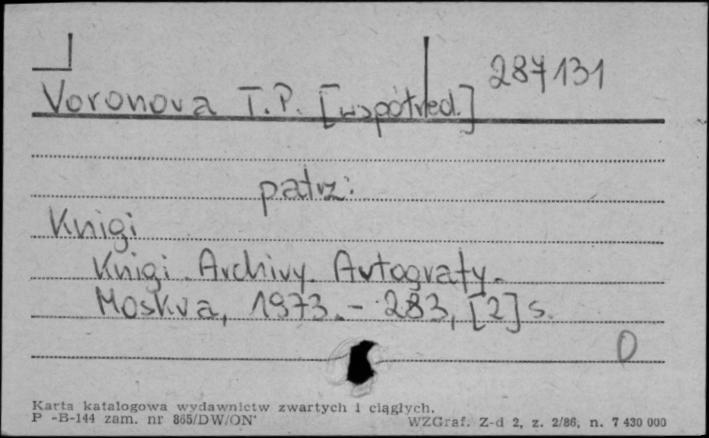 287131
Voronova T.P. [współred.]
patrz:
Knigi
Knigi. Archivy. Avtografy.-
Moskva, 1973.- 283, [2] s.
0
Karta katalogowa wydawnictw zwartych i ciągłych.
P -B-144 zam. nr 865/DW/ON'
WZGraf. Z-d 2, z. 2/86, n. 7 430 000